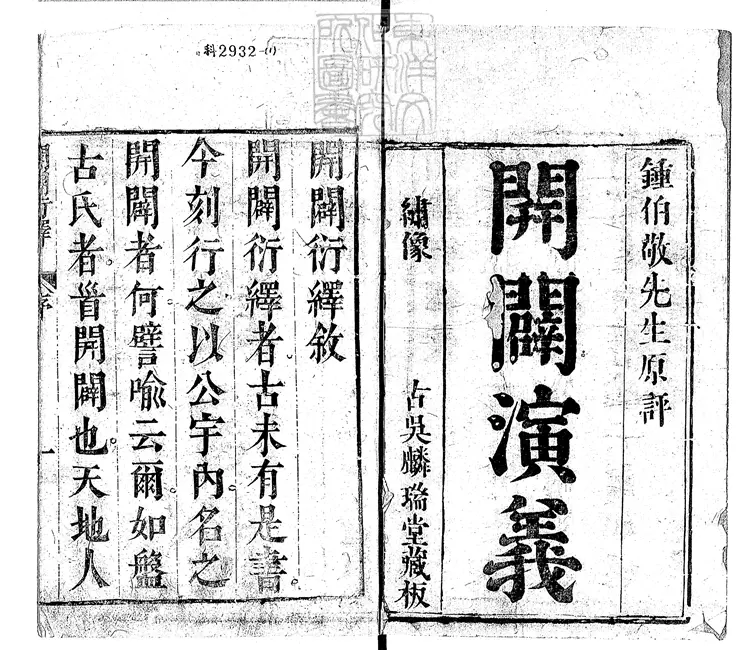 科2932-(1)
東洋文
化研究
所圖書
鍾伯敬先生原評
開闢演義
繡像
古吳麟瑞堂藏板
開闢衍繹敘
開闢衍繹者古未有是書
今刻行之以公宇內名之
開闢者何譬喻云爾如盤
古氏者首開闢也天地人
開闢衍繹
序
一